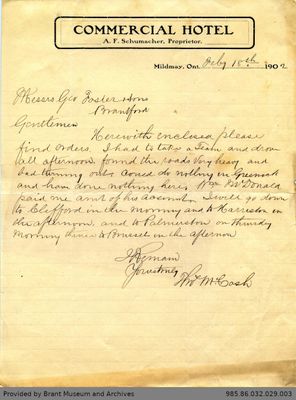 COMMERCIAL HOTEL
A. F. Schumacher, Proprietor.
Mildmay, Ont. Feby 18th 1902
Messrs Geo Foster & Sons
Brantford
Gentlemen
Herewith enclosed please
find orders. I had to take a team and drove
all afternoon found the roads very heavy and
bad turning out. Could do nothing in
and have done nothing here. Wm McDonald
paid me amt of his account. I will go down
to Clifford in the morning and to Harriston in
the afternoon, and to Palmerston on Thursday
morning thence to Brussels in the afternoon
I Remain
Yours truly
Thos McCosh
Provided by Brant Museum and Archives
985.86.032.029.003